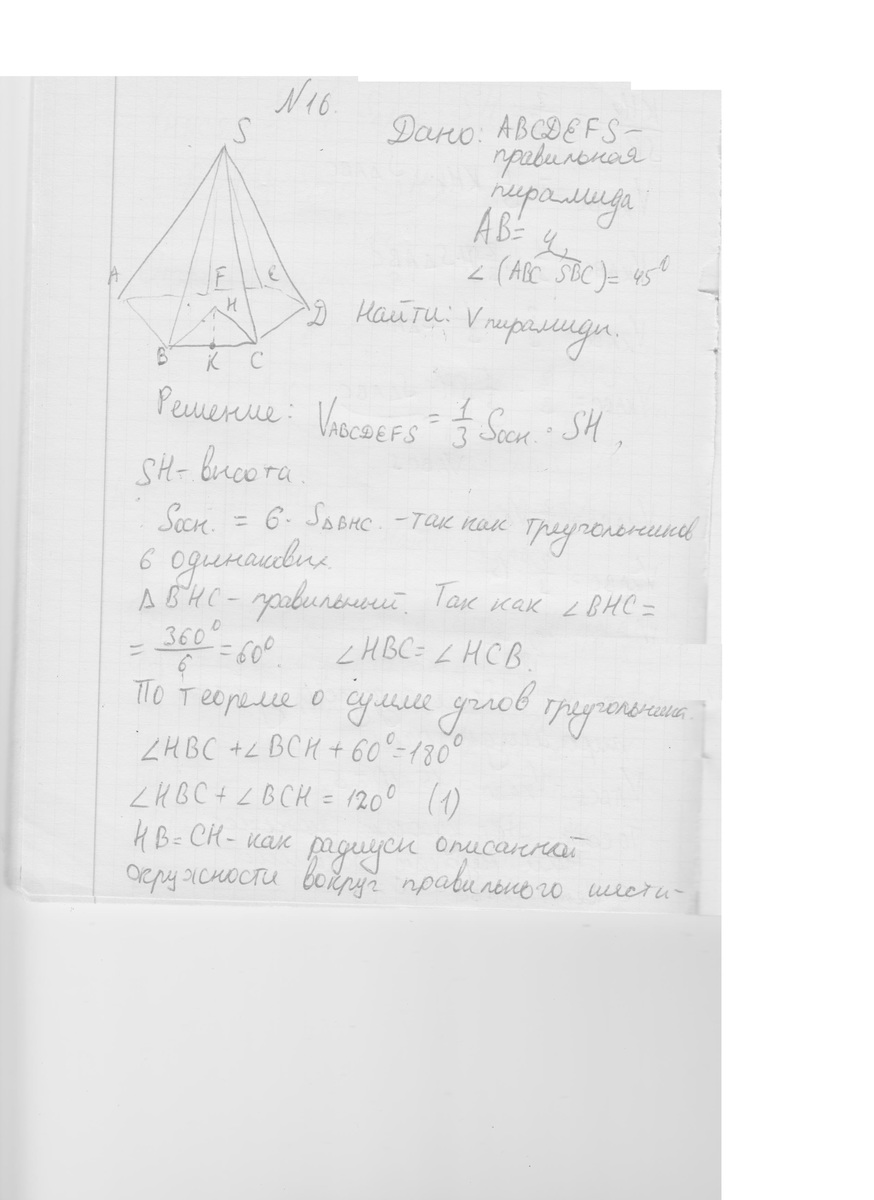 N16.
S
Дано: ABCDEFS –
правильная
пирамида
AB = 4,
∠(ABC SBC) = 45⁰
A F E
H
D Найти: V пирамиды.
B K C
Решение: V ABCDEFS = 1/3 Sосн. · SH,
SH – высота.
Sосн. = 6 · S△BHC. – так как треугольников
6 одинаковых.
△BHC – правильный. Так как ∠BHC =
= 360⁰/6 = 60⁰. ∠HBC = ∠HCB.
По теореме о сумме углов треугольника.
∠HBC + ∠BCH + 60⁰ = 180⁰
∠HBC + ∠BCH = 120⁰ (1)
HB = CH – как радиусы описанной
окружности вокруг правильного шести-